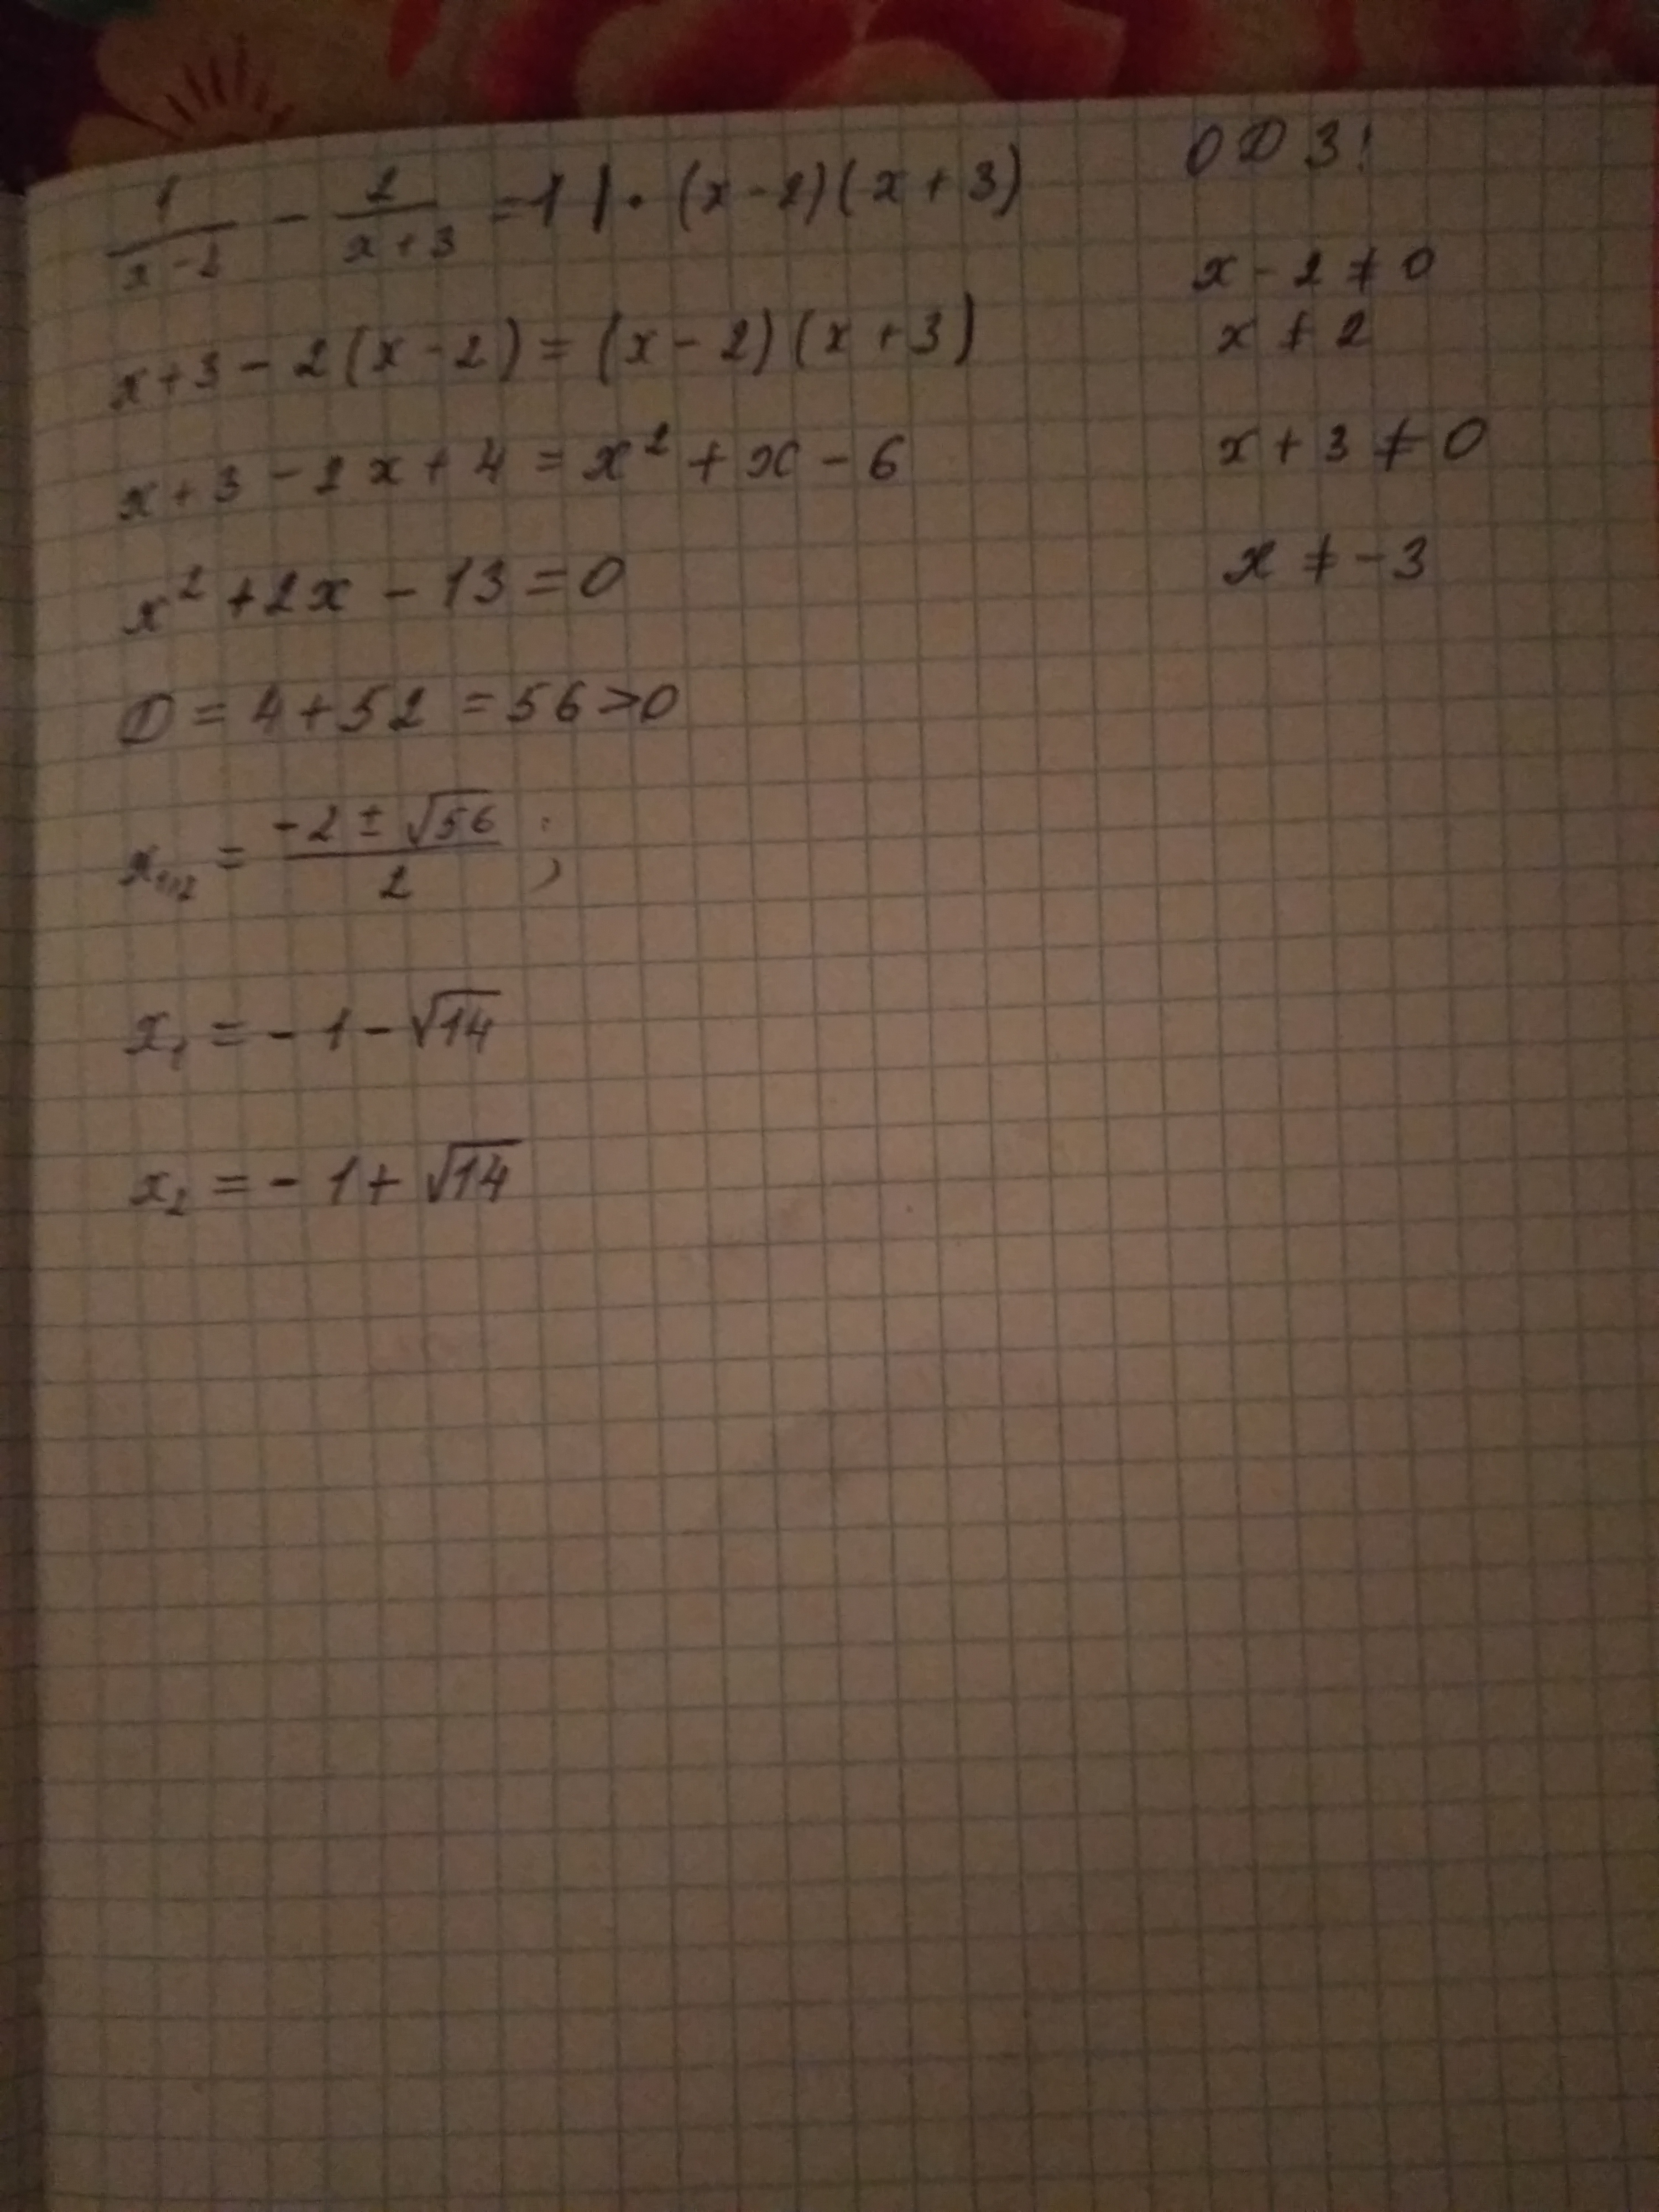 1/(x-2) - 2/(x+3) = 1 | · (x-2)(x+3)
x+3-2(x-2) = (x-2)(x+3)
x+3-2x+4 = x² + x - 6
x² + 2x - 13 = 0
D = 4+52 = 56 > 0
x₁,₂ = (-2 ± √56)/2 ;
x₁ = -1 - √14
x₂ = -1 + √14
ОДЗ:
x - 2 ≠ 0
x ≠ 2
x + 3 ≠ 0
x ≠ -3